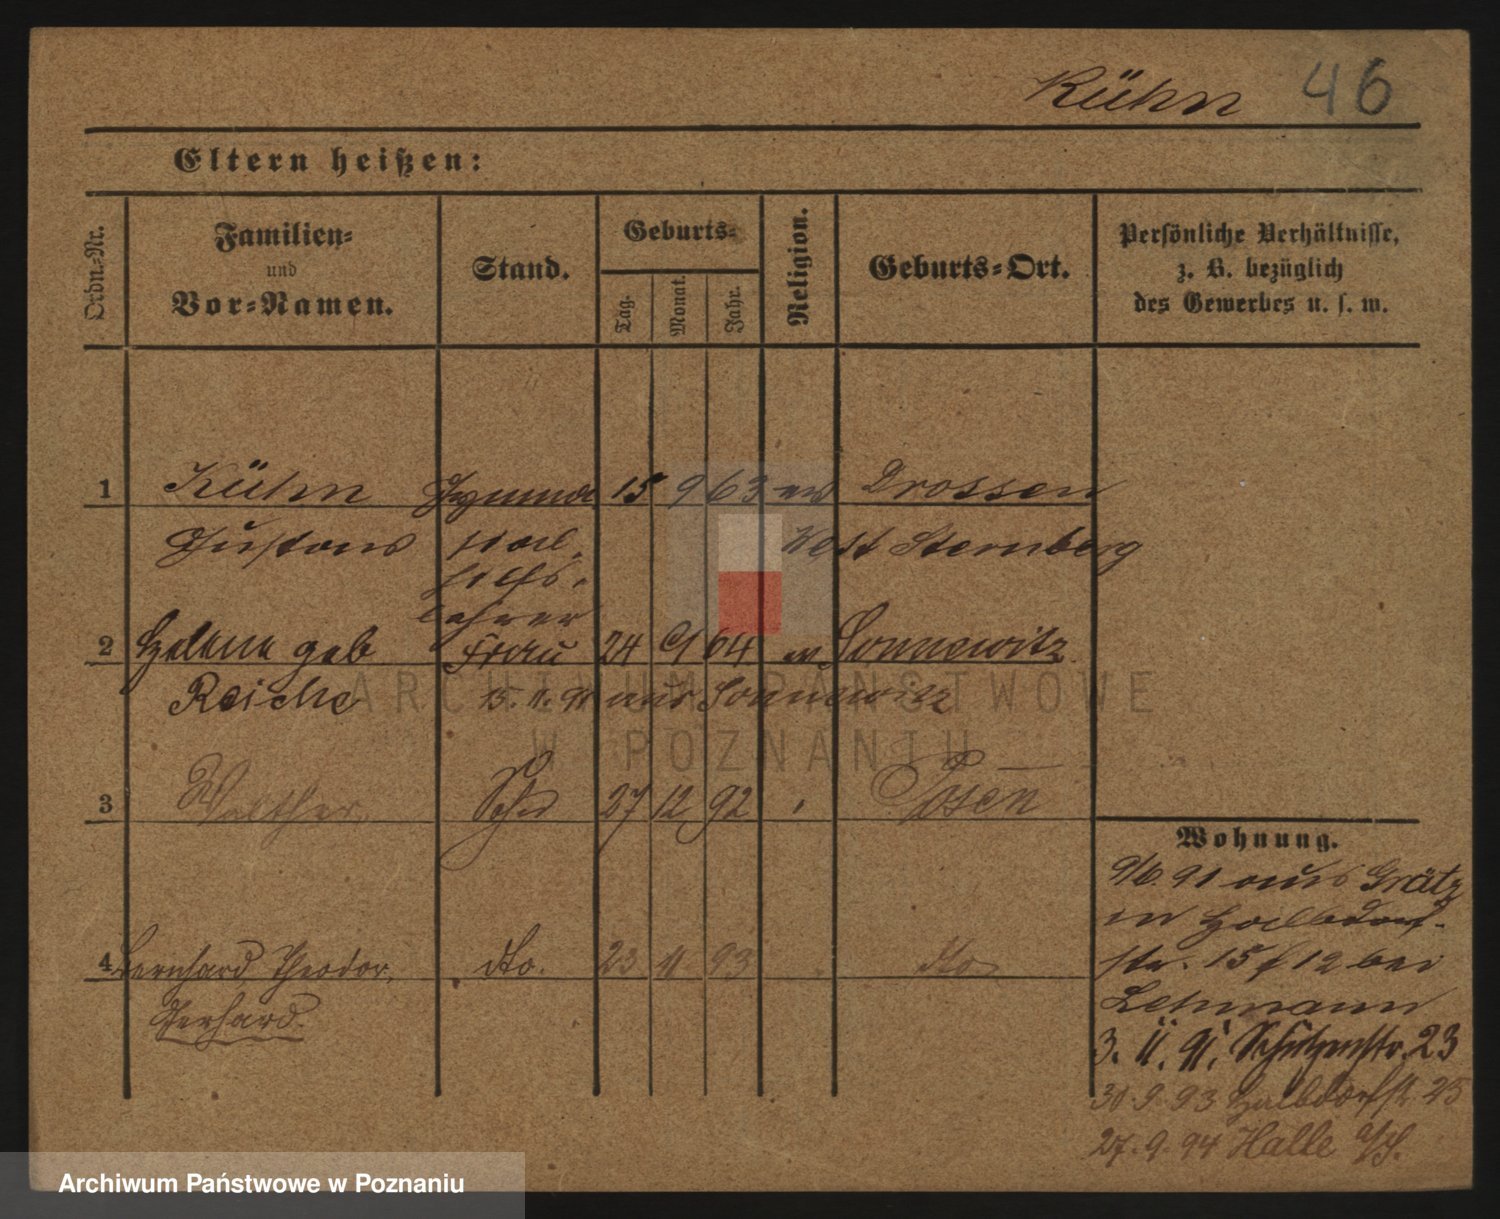 Kühn 46
Eltern heißen:
Ordn.-Nr.
Familien-
und
Vor-Namen.
Stand.
Geburts-
Tag.
Monat.
Jahr.
Religion.
Geburts-Ort.
Persönliche Verhältnisse,
z. B. bezüglich
des Gewerbes u. s. w.
1 Kühn Gymna 15 9 63 ev Drossen
Gustav sial West Sternberg
hilfs-
lehrer
2 Helene geb Frau 24 9 64 ev Sonnewitz
Reiche 15.11.91 aus Sonnewitz
3 Walther Sohn 27 12 92 Posen
4 Bernhard, Theodor, dto. 23 11 93 dto
Gerhard.
Wohnung.
9/6. 91 aus Grätz
in Halbdorf-
str. 15 f 12 bei
Lehmann
3. 11. 91. Schützenstr. 23
30. 9. 93 Halbdorfstr. 25
27. 9. 94 Halle a/S.
ARCHIWUM PAŃSTWOWE
W POZNANIU
Archiwum Państwowe w Poznaniu